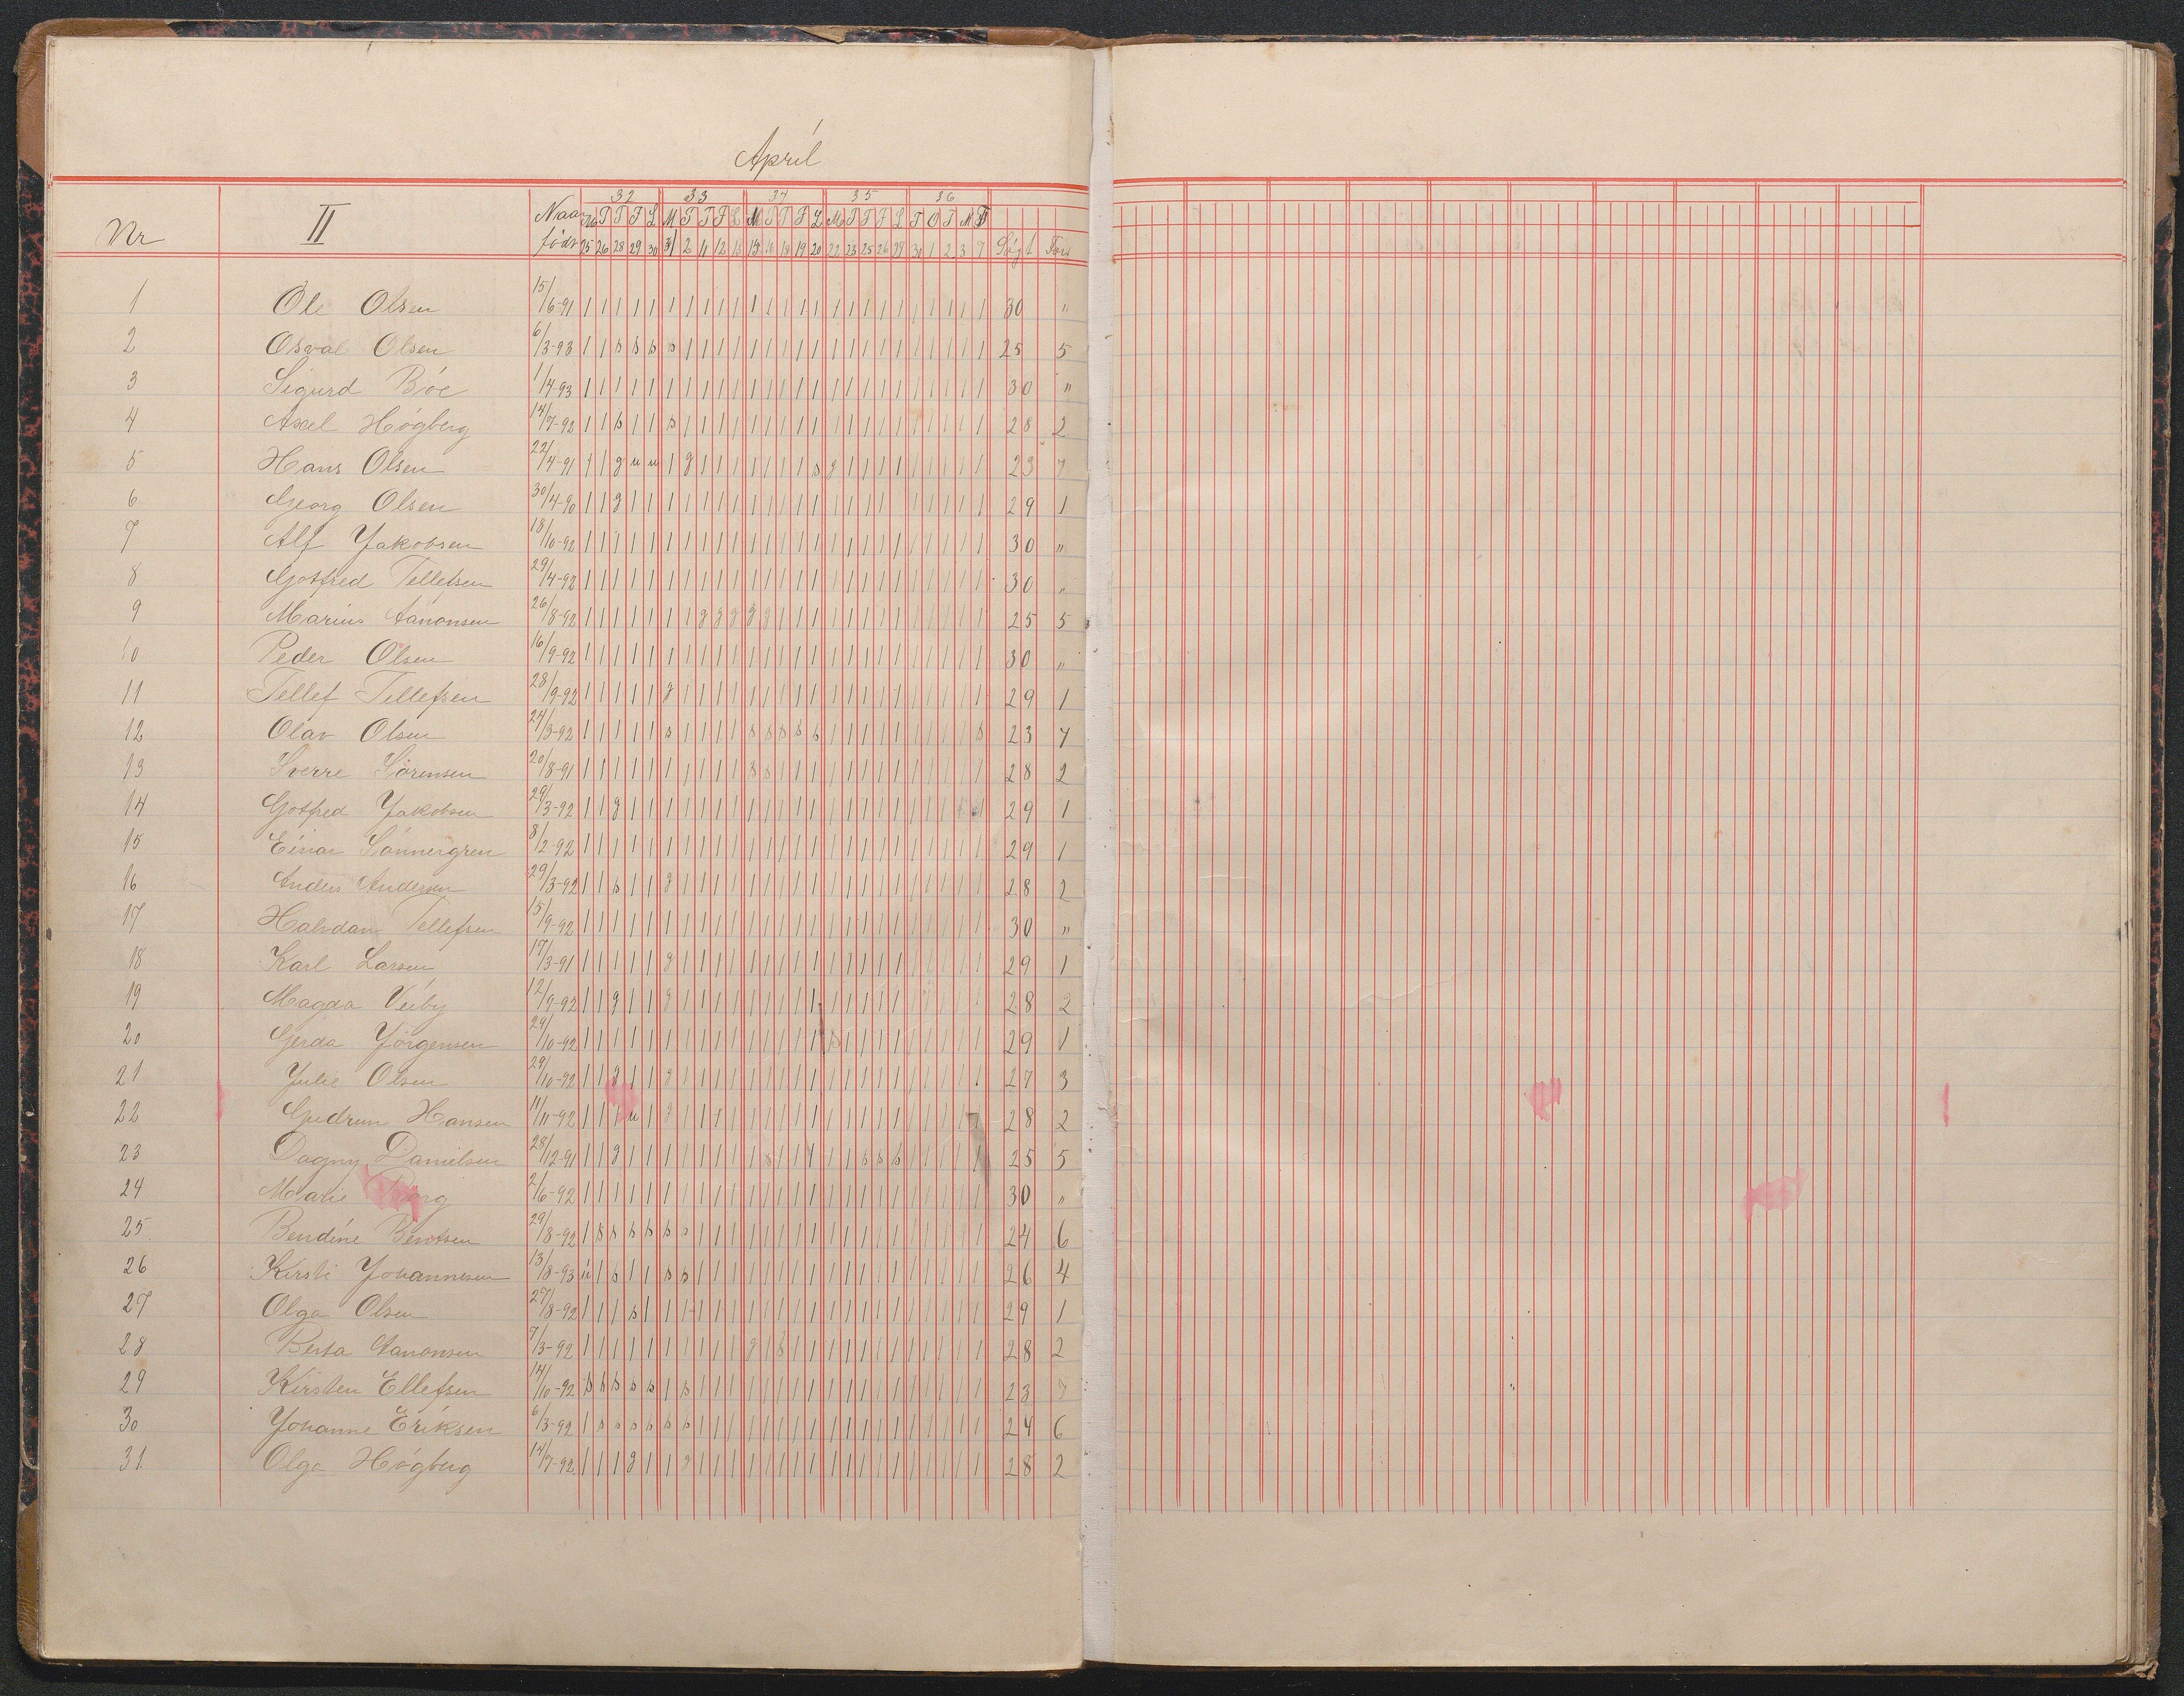 April
32 33 34 35 36
Nr II Naar M T T F L M T T F L M T T F L M T T F L T O T M T
født 25 26 28 29 30 2 11 12 13 15 16 18 19 20 22 23 25 26 30 1 2 3 7 Søgt
1 Ole Olsen 15/6-91 | | | | | | | | | | | | | | | | | | | | | | | | | 30 "
2 Osval Olsen 6/3-93 | | s s s s | | | | | | | | | | | | | | | | | | | 25 5
3 Sigurd Bøe 1/4-93 | | | | | | | | | | | | | | | | | | | | | | | | | 30 "
4 Axel Høgberg 14/7-92 | | s | | s | | | | | | | | | | | | | | | | | | | 28 2
5 Hans Olsen 22/4-91 | | g u u | g | | | | | | | s g | | | | | | | | | 23 7
6 Georg Olsen 30/4-90 | | g | | | | | | | | | | | | | | | | | | | | | | 29 1
7 Alf Jakobsen 18/10-92 | | | | | | | | | | | | | | | | | | | | | | | | | 30 "
8 Gotfred Tellefsen 29/4-92 | | | | | | | | | | | | | | | | | | | | | | | | | 30 "
9 Marius Aanonsen 26/8-92 | | | | | | | g g g g g | | | | | | | | | | | | | 25 5
10 Peder Olsen 16/9-92 | | | | | | | | | | | | | | | | | | | | | | | | | 30 "
11 Tellef Tellefsen 28/9-92 | | | | | g | | | | | | | | | | | | | | | | | | | 29 1
12 Olav Olsen 24/3-92 | | | | | s | | | | s s s s s | | | | | | | | | s 23 7
13 Sverre Sørensen 20/8-91 | | | | | | | | | | s s | | | | | | | | | | | | | 28 2
14 Gotfred Jakobsen 29/3-92 | | g | | | | | | | | | | | | | | | | | | | | | | 29 1
15 Einar Sønnergren 8/2-92 | | | | | | | | | | | | | | | | | | | | | | | | | 29 1
16 Anders Andersen 29/3-92 | | s | | g | | | | | | | | | | | | | | | | | | | 28 2
17 Halvdan Tellefsen 15/9-92 | | | | | | | | | | | | | | | | | | | | | | | | | 30 "
18 Karl Larsen 17/3-91 | | | | | g | | | | | | | | | | | | | | | | | | | 29 1
19 Magda Veiby 12/9-92 | | g | | g | | | | | | | | | | | | | | | | | | | 28 2
20 Gerda Jørgensen 29/10-92 | | | | | | | | | | | | | | | s | | | | | | | | | 29 1
21 Julie Olsen 29/10-92 | | g | | g | | | | | | | | | | | | | | | | | | | 27 3
22 Gudrun Hansen 11/11-92 | | | u | g | | | | | | | | | | | | | | | | | | | 28 2
23 Dagny Danielsen 28/12-91 | | g | | | | | | | | s | | | | | s s s | | | | | 25 5
24 Marie 2/6-92 | | | | | | | | | | | | | | | | | | | | | | | | | 30 "
25 Bendine Bentsen 29/8-92 | s s s s s s | | | | | | | | | | | | | | | | | | 24 6
26 Kirsti Johannesen 13/8-93 u | s | | s s | | | | | | | | | | | | | | | | | | 26 4
27 Olga Olsen 27/8-92 | | | s | | | | | | | | | | | | | | | | | | | | | 29 1
28 Berta Aanonsen 7/3-92 | | | | | | | | | | g | g | | | | | | | | | | | | 28 2
29 Kirsten Ellefsen 14/10-92 s s s s s | s | | | | | | | | | | | | | | | | | | 23 7
30 Johanne Eriksen 6/3-92 | s s s s s s | | | | | | | | | | | | | | | | | | 24 6
31. Olga Høgberg 14/7-92 | | | g | | g | | | | | | | | | | | | | | | | | | 28 2